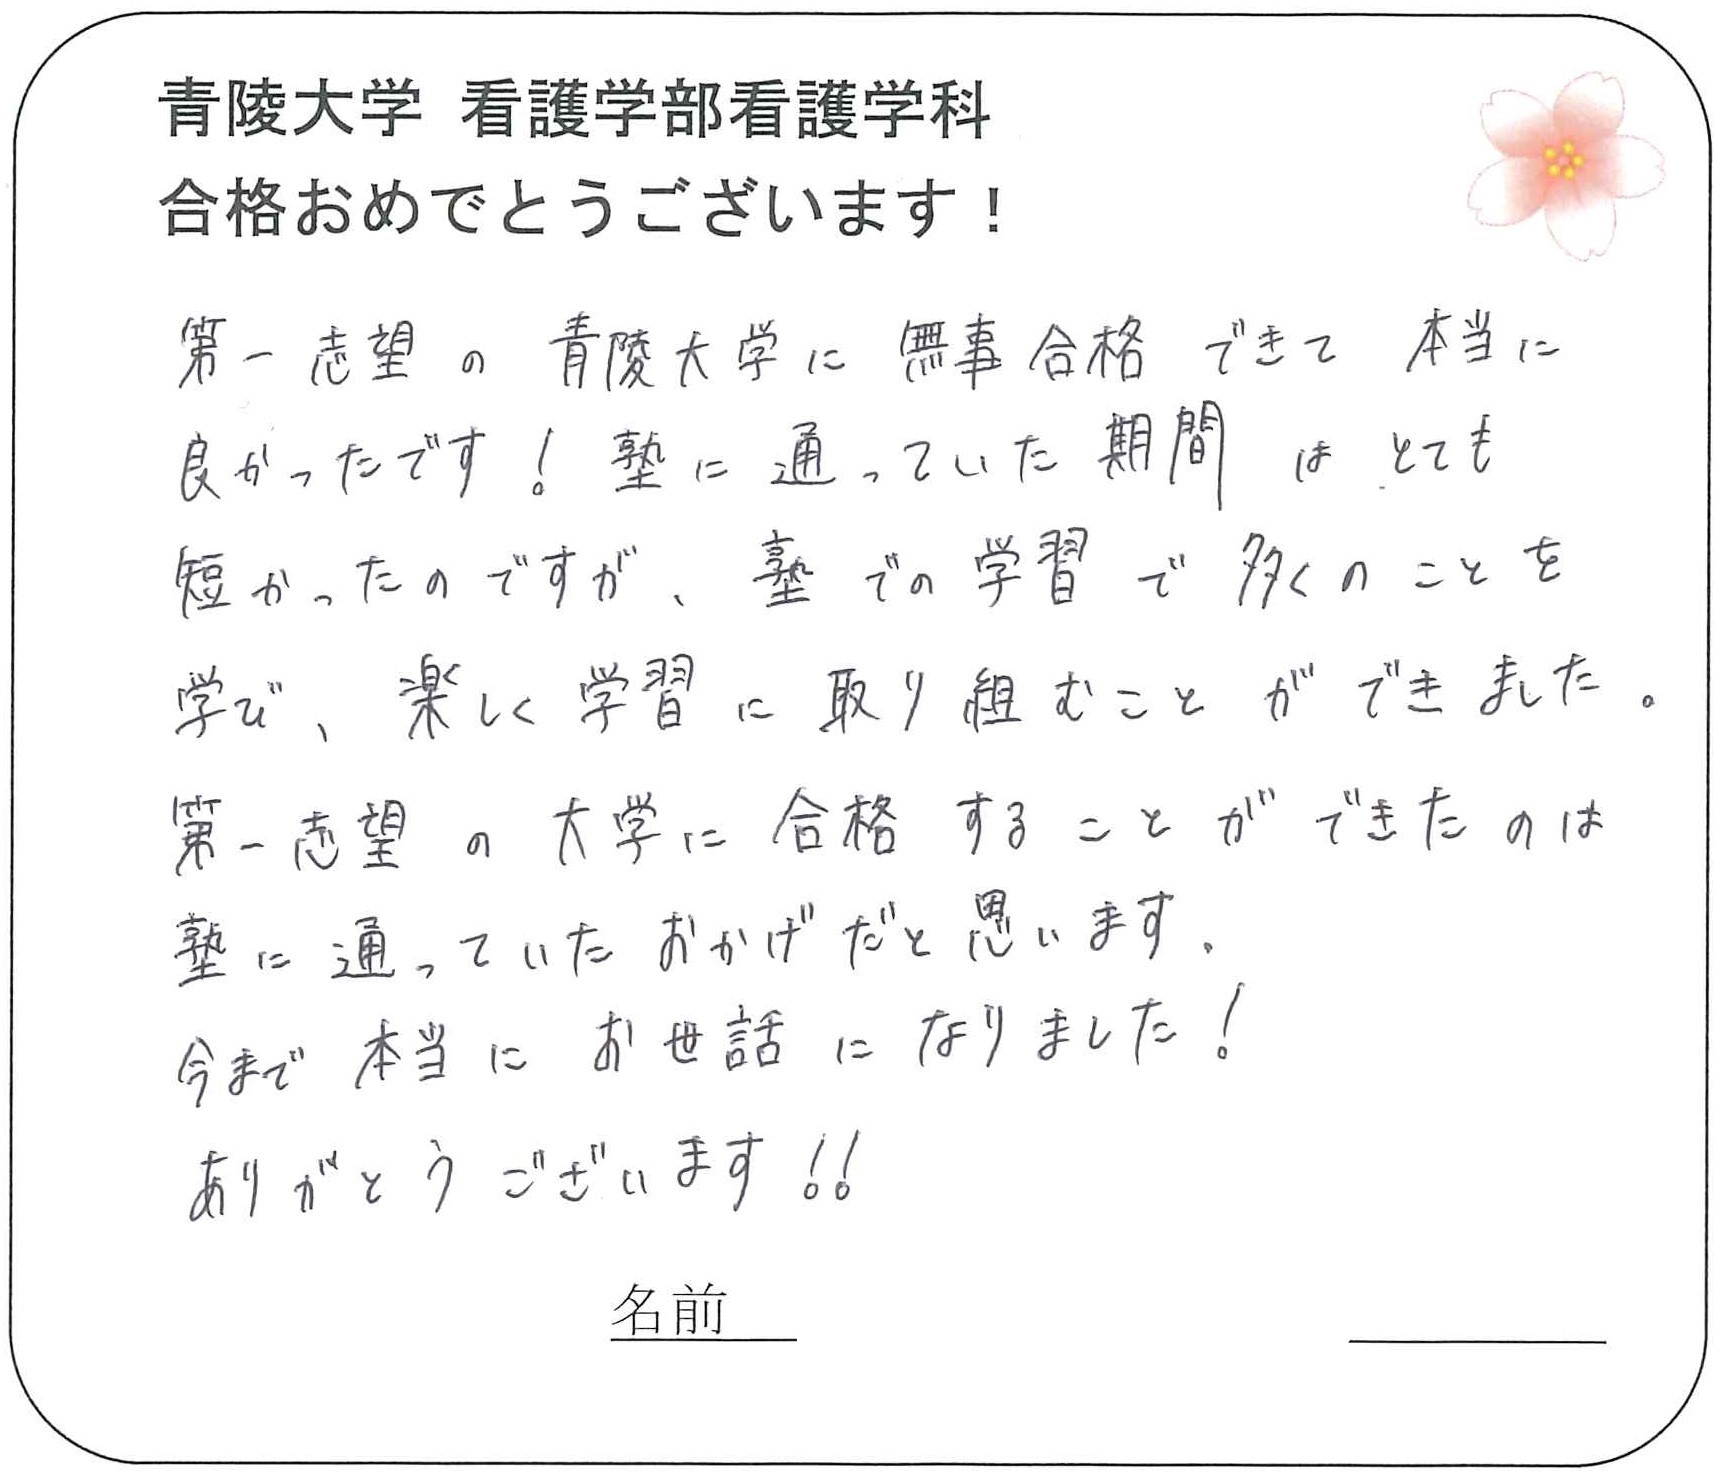 青陵大学 看護学部看護学科
合格おめでとうございます！
第一志望の青陵大学に無事合格できて本当に
良かったです！塾に通っていた期間はとても
短かったのですが、塾での学習で多くのことを
学び、楽しく学習に取り組むことができました。
第一志望の大学に合格することができたのは
塾に通っていたおかげだと思います。
今まで本当にお世話になりました！
ありがとうございます！！
名前